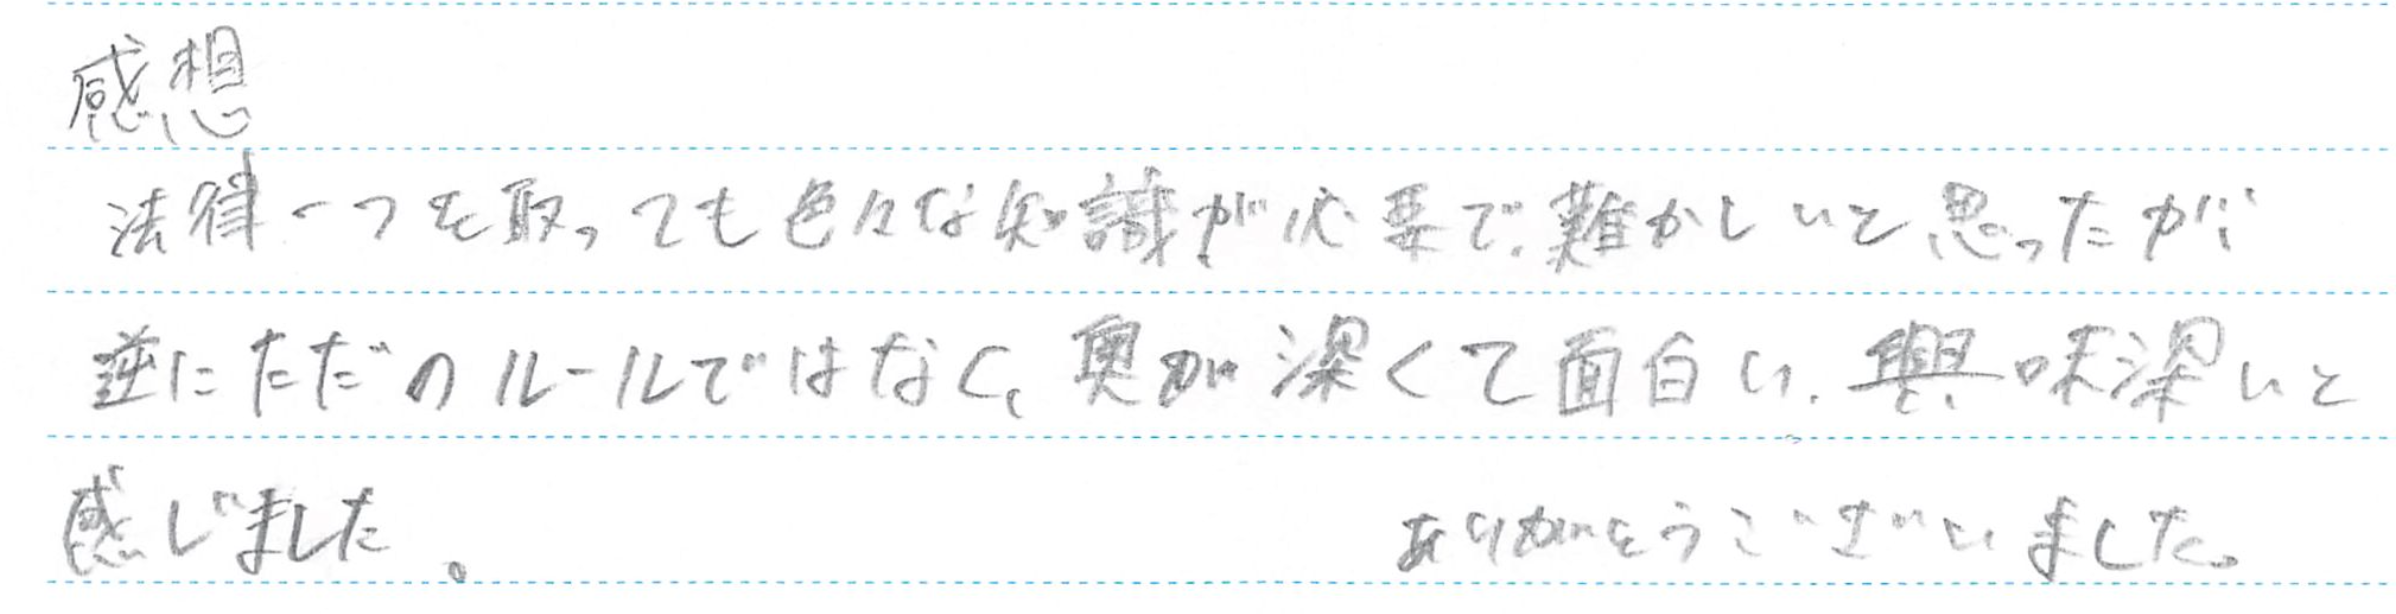 感想
法律一つを取っても色々な知識が必要で、難かしいと思ったが
逆にただのルールではなく、奥が深くて面白い、興味深いと
感じました。 ありがとうございました。